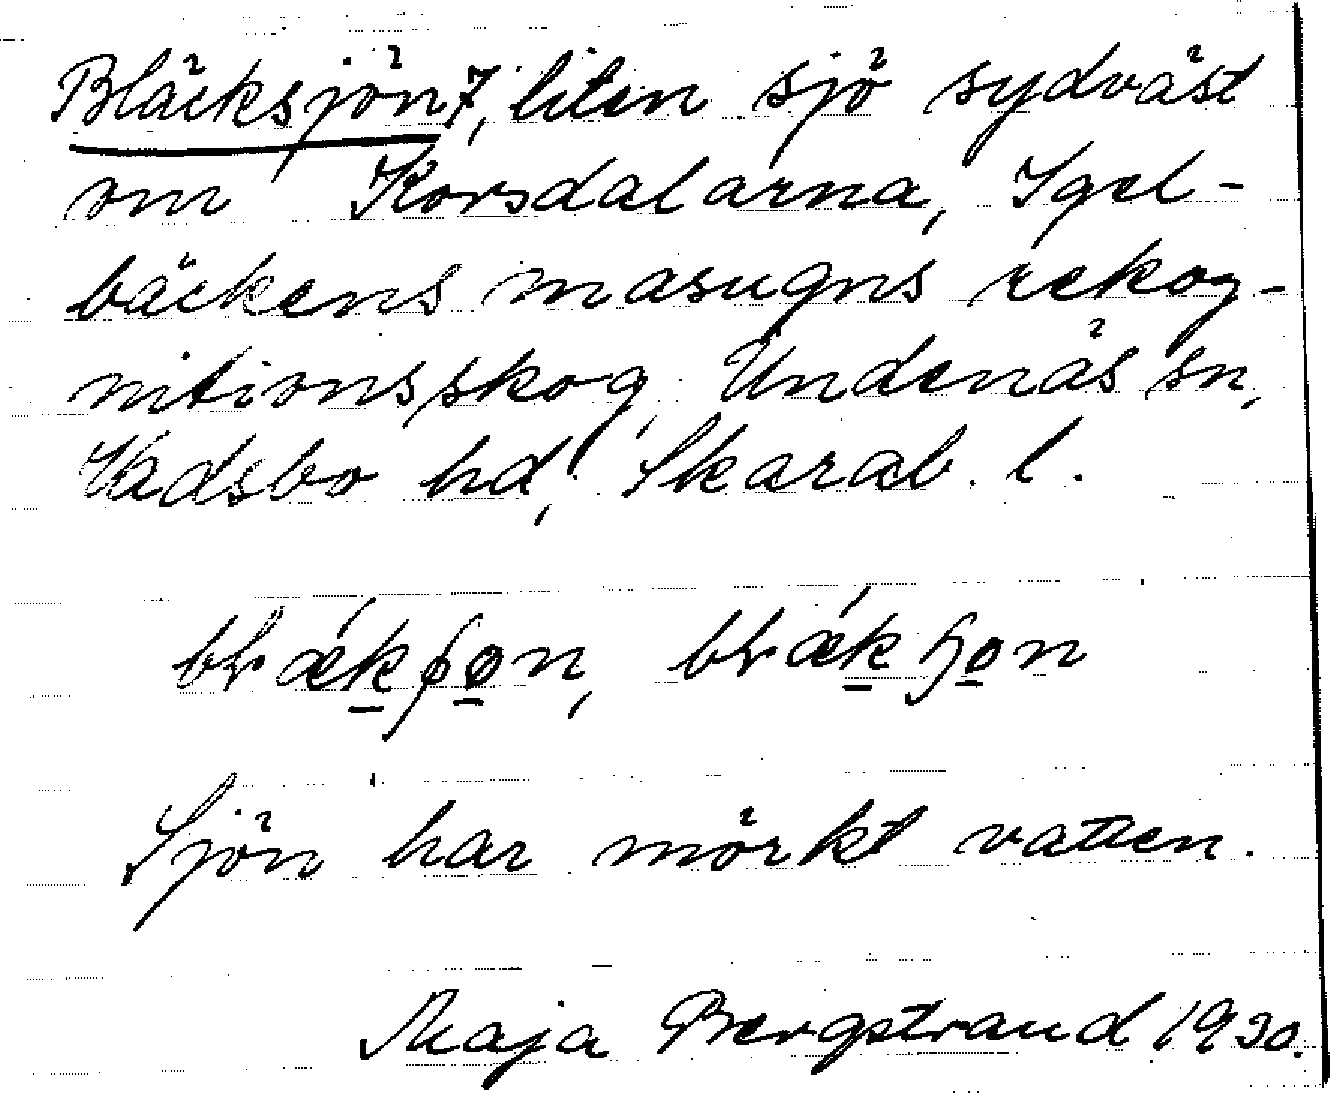 Bläcksjön 7, liten sjö sydväst
om Korsdalarna, Igel-
bäckens masugns rekog-
nitionsskog, Undenäs sn,
Vadsbo hd, Skarab. l.
Sjön har mörkt vatten.
Maja Bergstrand 1930.